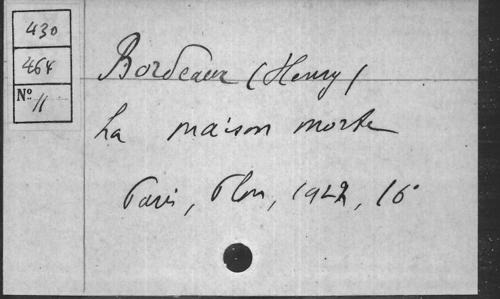 430
464
Nº 11
Bordeaux (Henry)
La maison morte
Paris, Plon, 1922, 16°